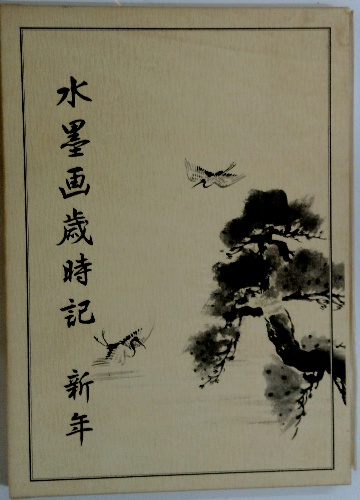 水墨画歳時記 新年